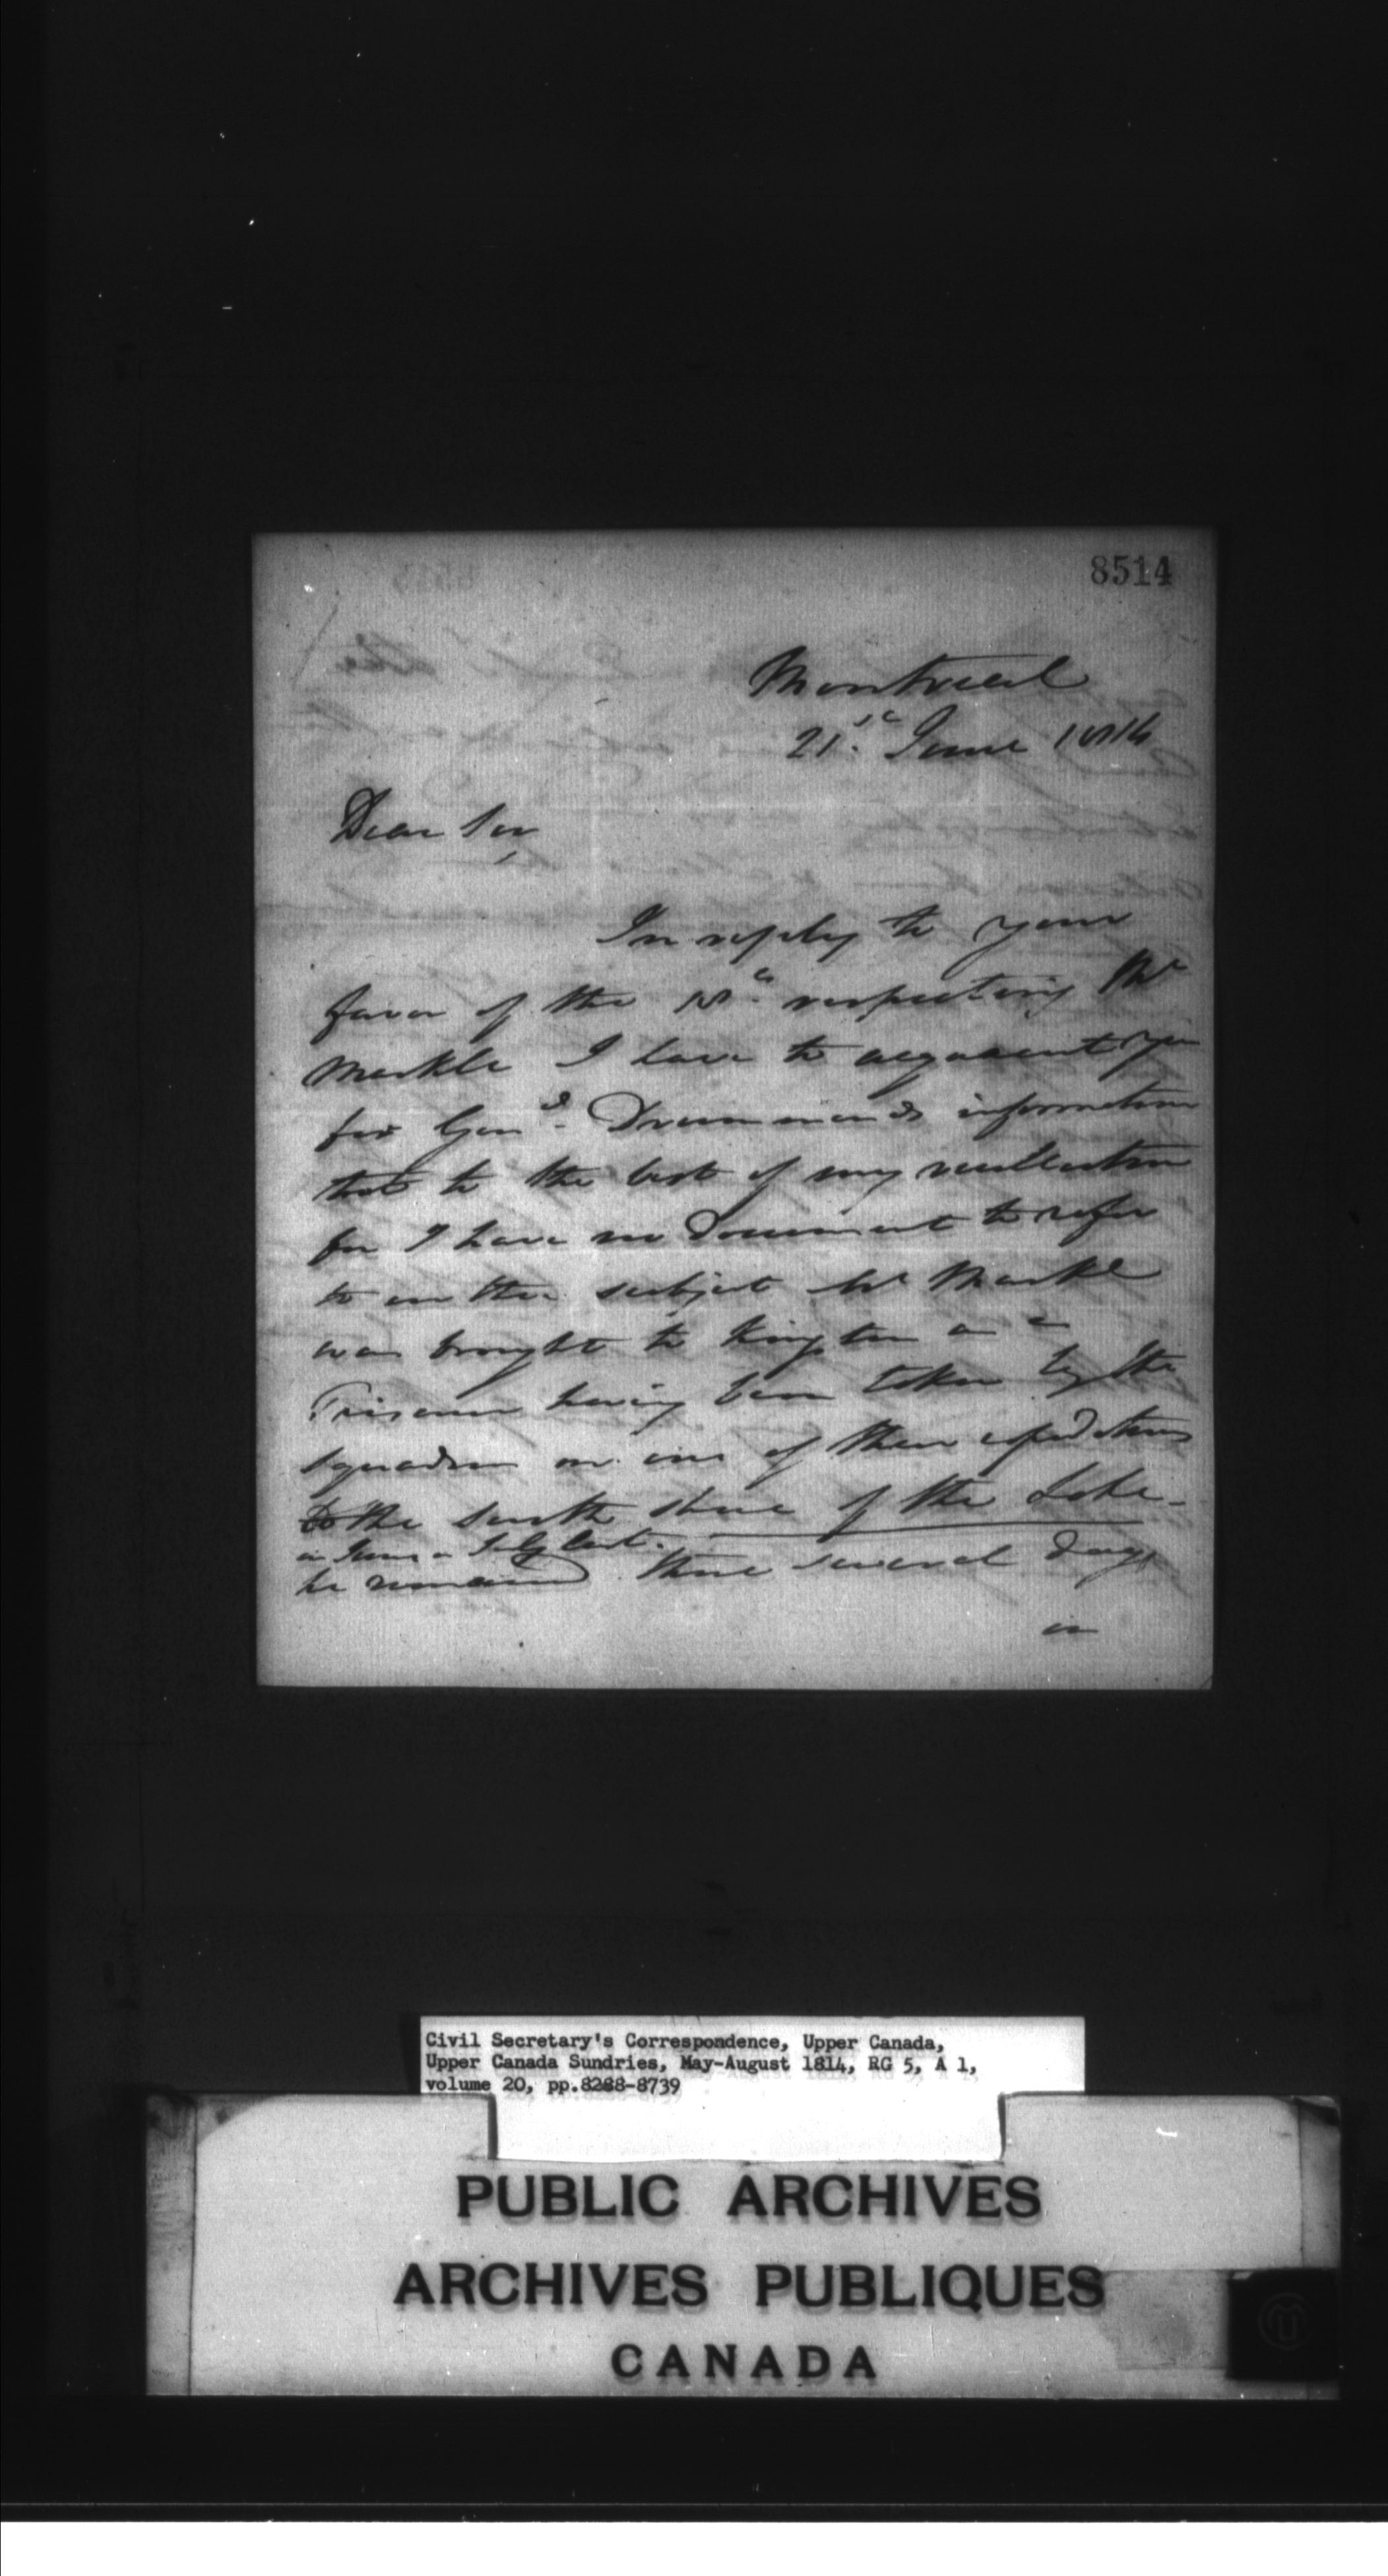 8514
Montreal
21st June 1814
Dear Sir
In reply to your
favor of the 18th respecting Mr
Markle I have to acquaint you
for Genl. Drummonds information
that to the best of my recollection
for I have no Document to refer
to on the subject Mr Markle
was brought to Kingston as a
Prisoner having been taken by the
squadron on one of their expeditions
to the South shore of the Lake -
in June or July last.
he remained there several days
in
Civil Secretary's Correspondence, Upper Canada,
Upper Canada Sundries, May-August 1814, RG 5, A 1,
volume 20, pp.8288-8739
PUBLIC ARCHIVES
ARCHIVES PUBLIQUES
CANADA